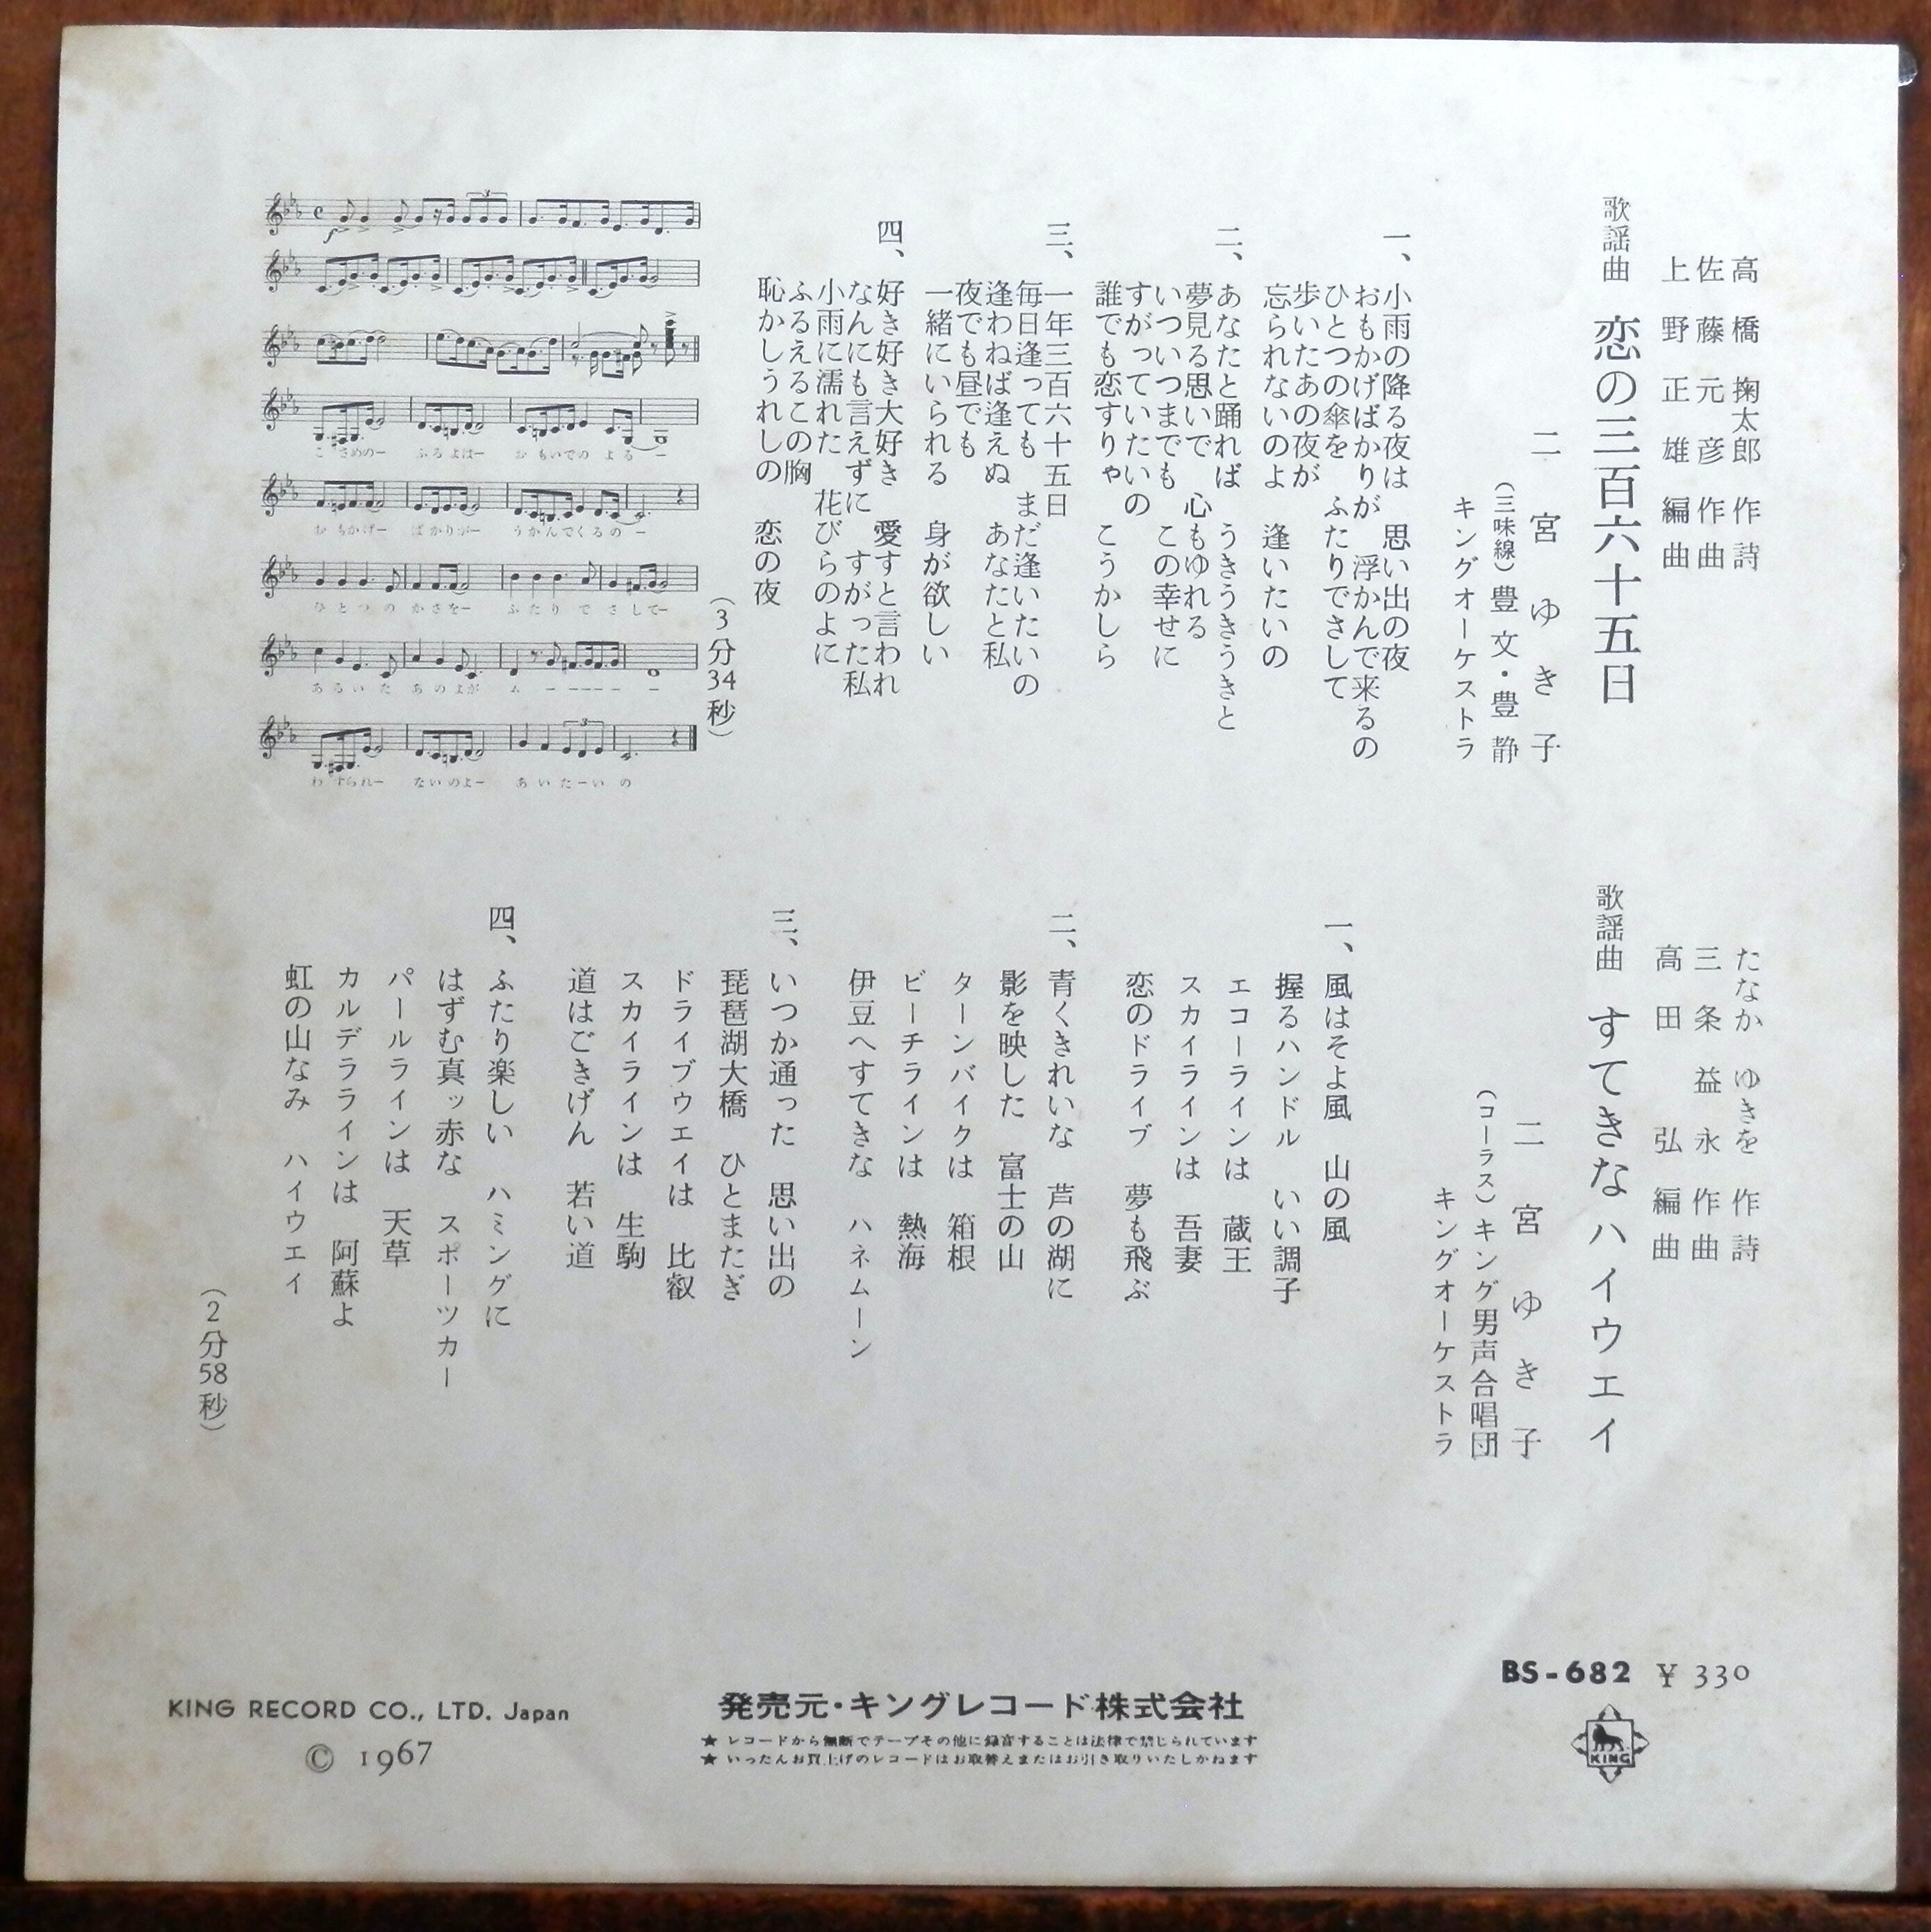 高橋掬太郎 作詩
佐藤元彦 作曲
上野正雄 編曲
歌謡曲 恋の三百六十五日
二宮ゆき子
（三味線）豊文・豊静
キングオーケストラ
一、小雨の降る夜は 思い出の夜
おもかげばかりが 浮かんで来るの
ひとつの傘を ふたりでさして
歩いたあの夜が
忘られないのよ 逢いたいの
二、あなたと踊れば うきうきうきと
夢見る思いで 心もゆれる
いついつまでも この幸せに
すがっていたいの
誰でも恋すりゃ こうかしら
三、一年三百六十五日
毎日逢っても まだ逢いたいの
逢わねば逢えぬ あなたと私
夜でも昼でも
一緒にいられる 身が欲しい
四、好き好き大好き 愛すと言われ
なんにも言えずに すがった私
小雨に濡れた 花びらのよに
ふるえるこの胸
恥かしうれしの 恋の夜
（3分34秒）
こさめのー ふるよはー おもいでの よるー
おもかげー ばかりがー うかんでくるのー
ひとつの かさをー ふたりで さしてー
あるいた あのよが ム
わすられー ないのよー あいたーいの
たなか ゆきを 作詩
三条益永 作曲
高田弘 編曲
歌謡曲 すてきなハイウエイ
二宮ゆき子
（コーラス）キング男声合唱団
キングオーケストラ
一、風はそよ風 山の風
握るハンドル いい調子
エコーラインは 蔵王
スカイラインは 吾妻
恋のドライブ 夢も飛ぶ
二、青くきれいな 芦の湖に
影を映した 富士の山
ターンバイクは 箱根
ビーチラインは 熱海
伊豆へすてきな ハネムーン
三、いつか通った 思い出の
琵琶湖大橋 ひとまたぎ
ドライブウェイは 比叡
スカイラインは 生駒
道はごきげん 若い道
四、ふたり楽しい ハミングに
はずむ真ッ赤な スポーツカー
パールラインは 天草
カルデララインは 阿蘇よ
虹の山なみ ハイウエイ
（2分58秒）
BS-682 ¥ 330
KING
発売元・キングレコード株式会社
★ レコードから無断でテープその他に録音することは法律で禁じられています
★ いったんお買上げのレコードはお取替えまたはお引き取りいたしかねます
KING RECORD CO., LTD. Japan
© 1967